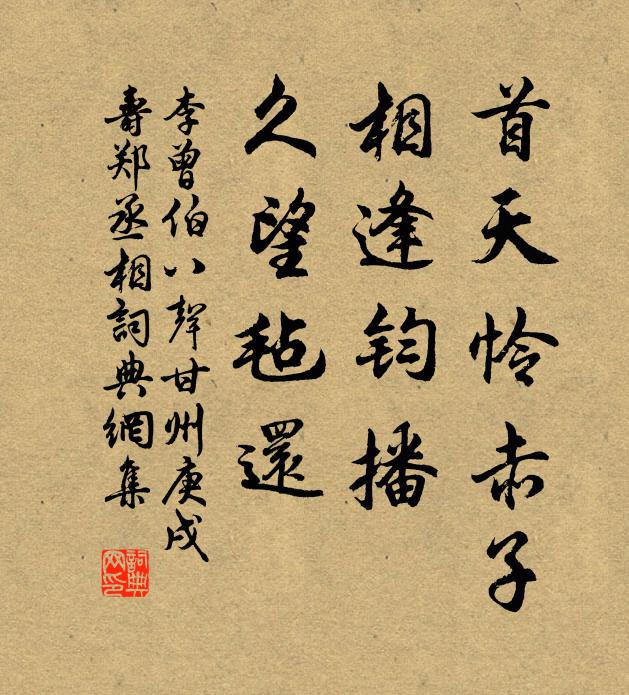 首天怜赤子
相逢钧播
久望毡還
李曾伯八聲甘州庚戌
壽郑丞相詞典網集
詞典网印